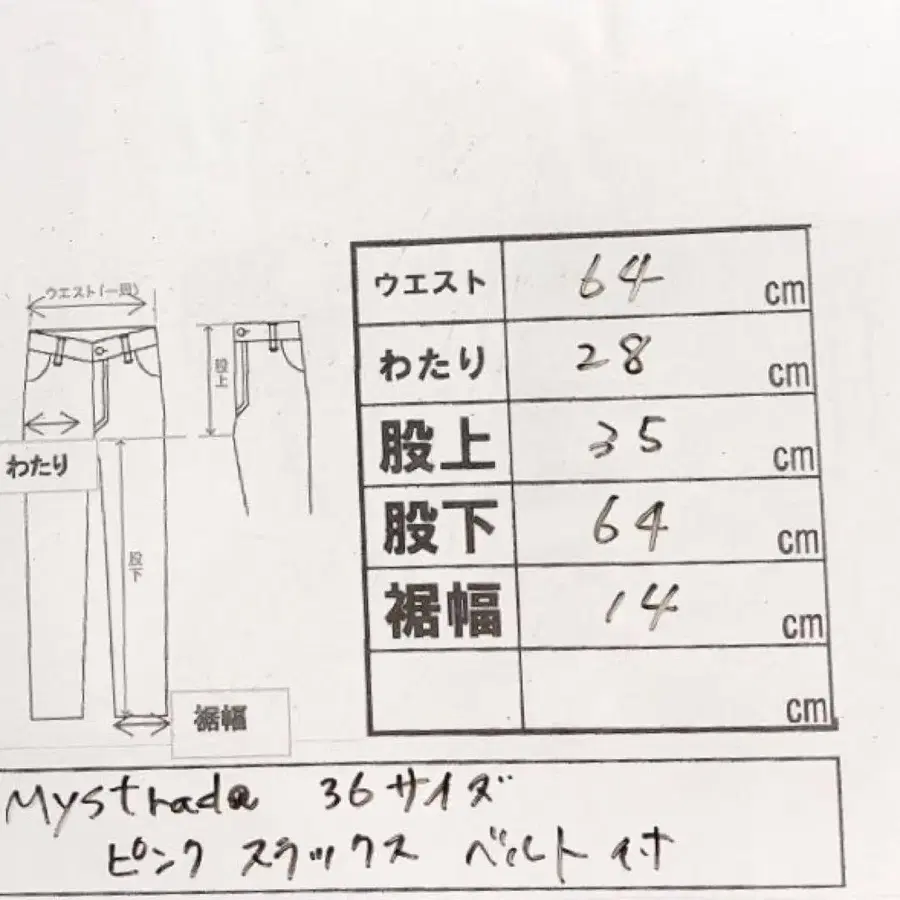 ウエスト(一周)
わたり
股上
股下
裾幅
ウエスト 64 cm
わたり 28 cm
股上 35 cm
股下 64 cm
裾幅 14 cm
cm
Mystrada 36サイズ
ピンク スラックス ベルト付